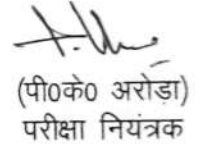 (पी0के0 अरोड़ा)
परीक्षा नियंत्रक